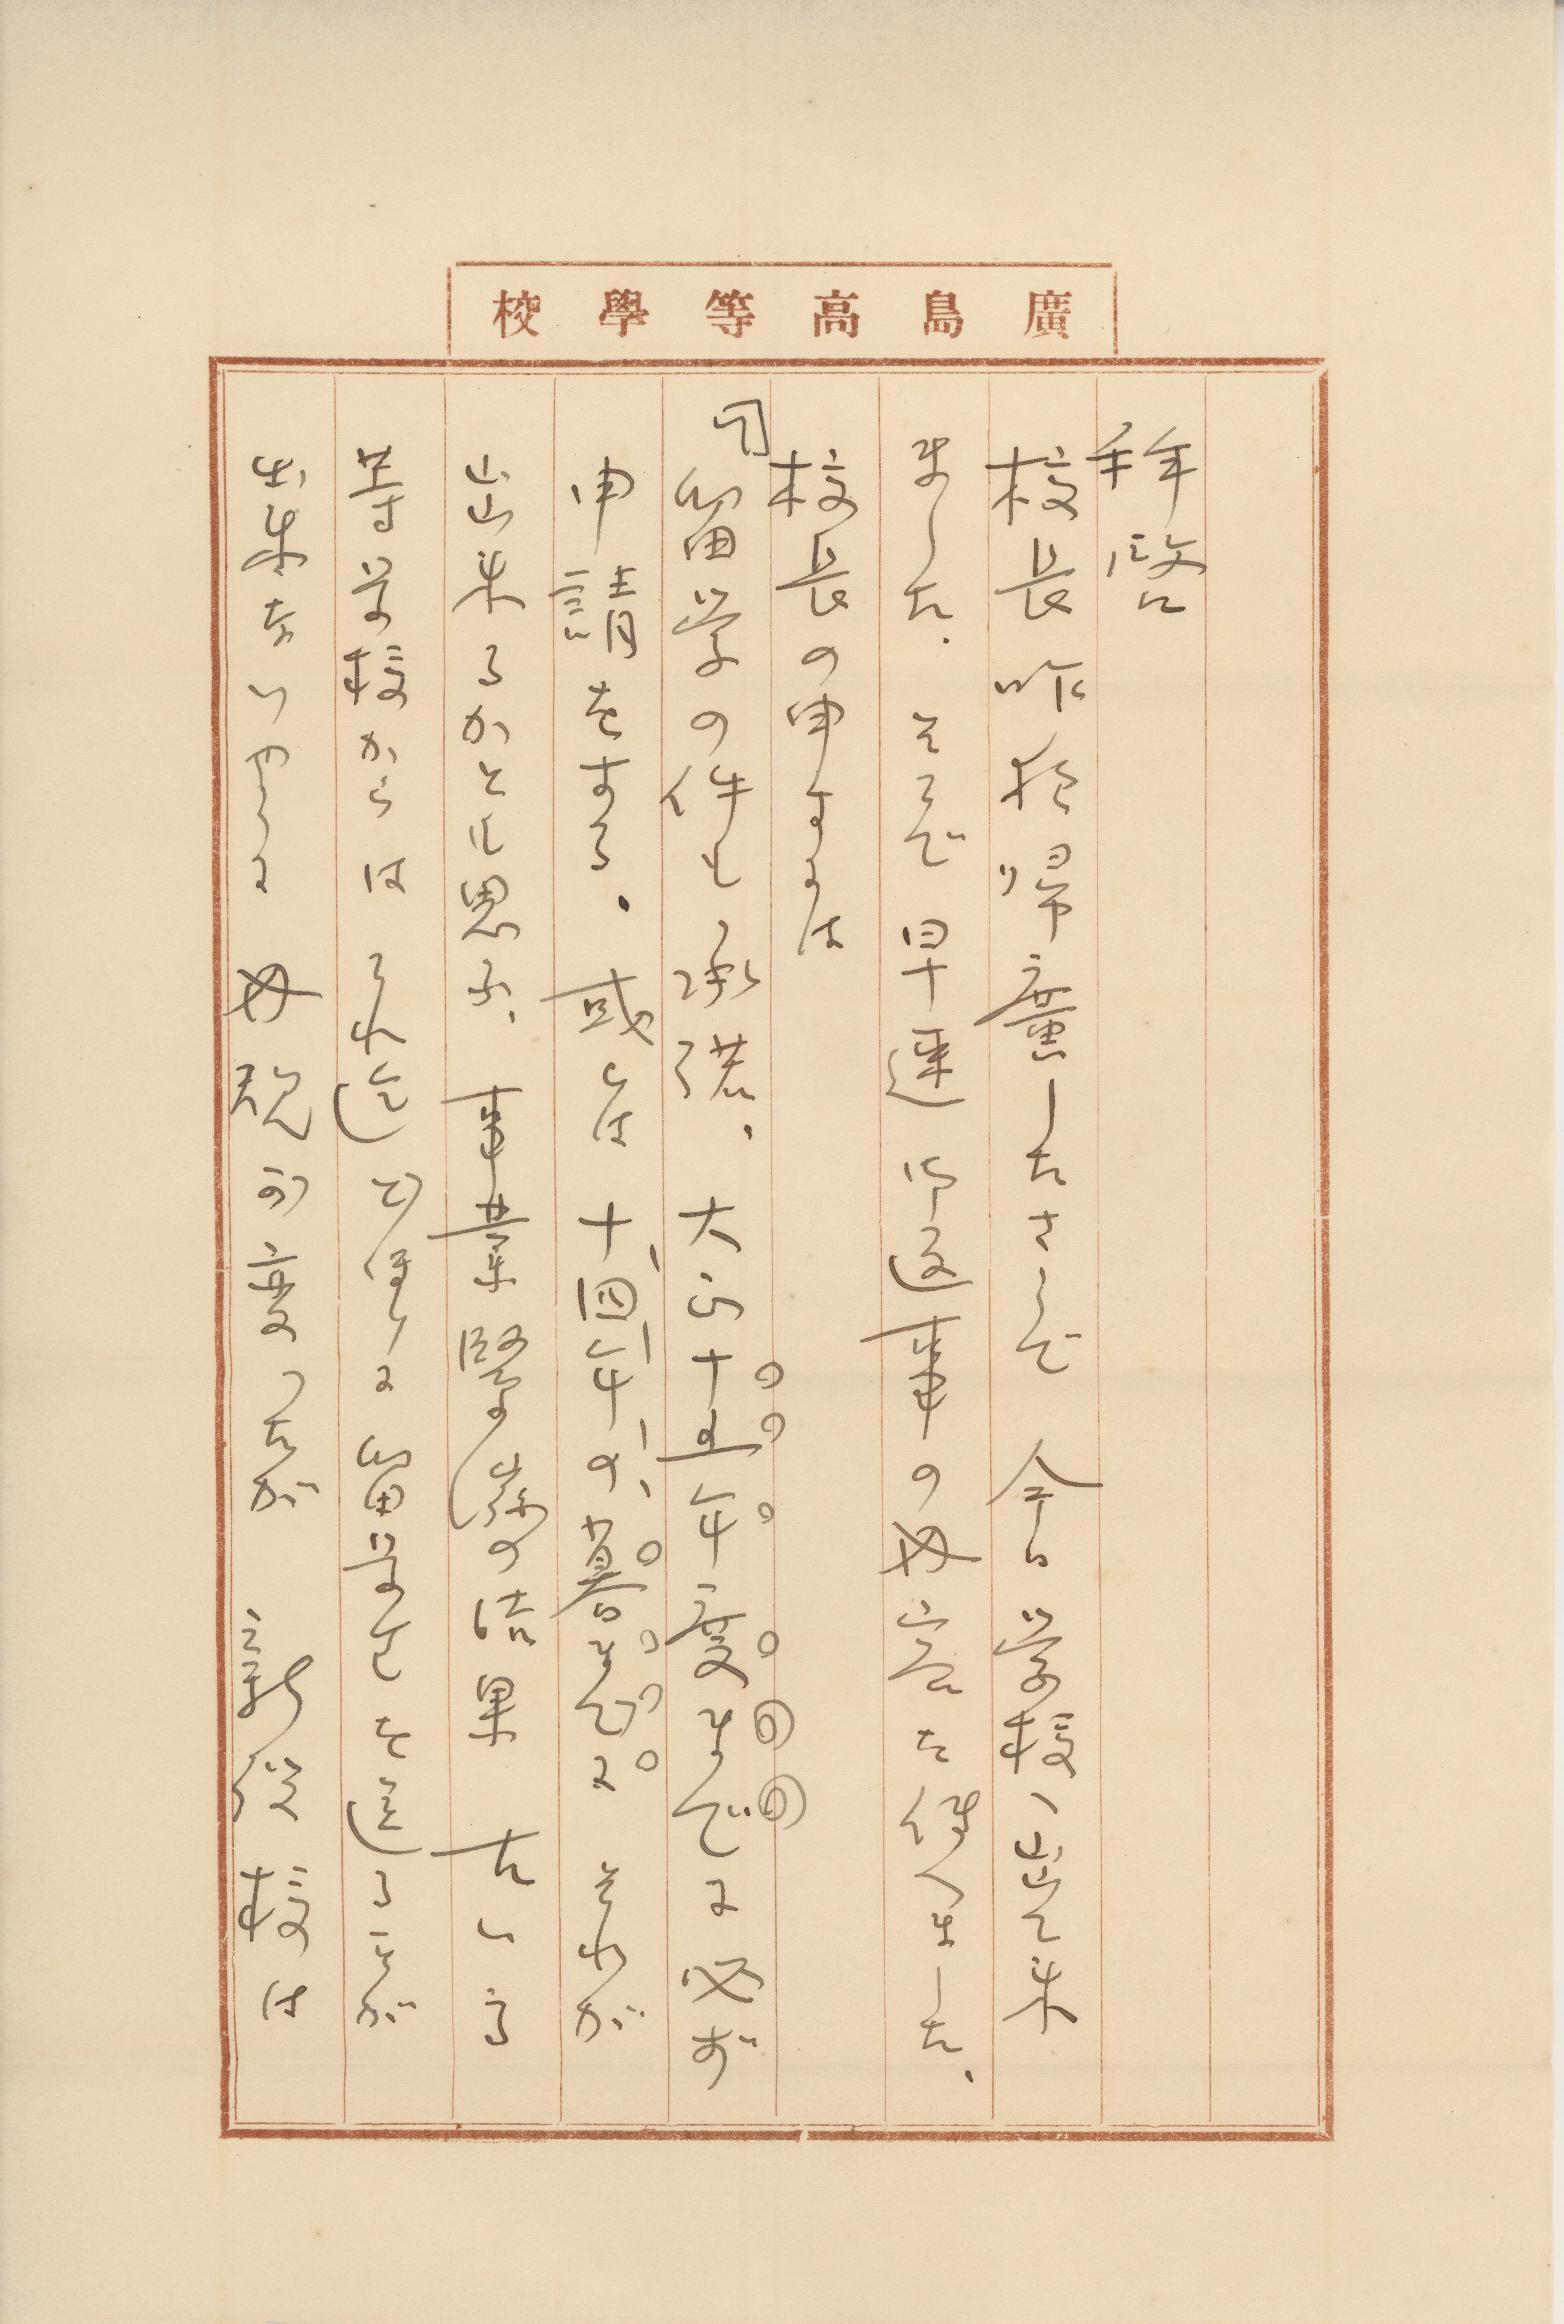 廣島高等學校
拝啓
校長昨夜帰廣したさうで 今日学校へ出て来
ました. そこで早速御返事の母容を伺ひました.
校長の申すには
「留学の件も承諾. 大正十五年度までに必ず
申請をする. 或は十四年の暮までに それが
出来るかとも思ふ. 事業繰延の結果 たいてい
高等学校からは これ迄 とほりに留学生を送ることが
出来ないやうに 母規が変つたが 新設校は